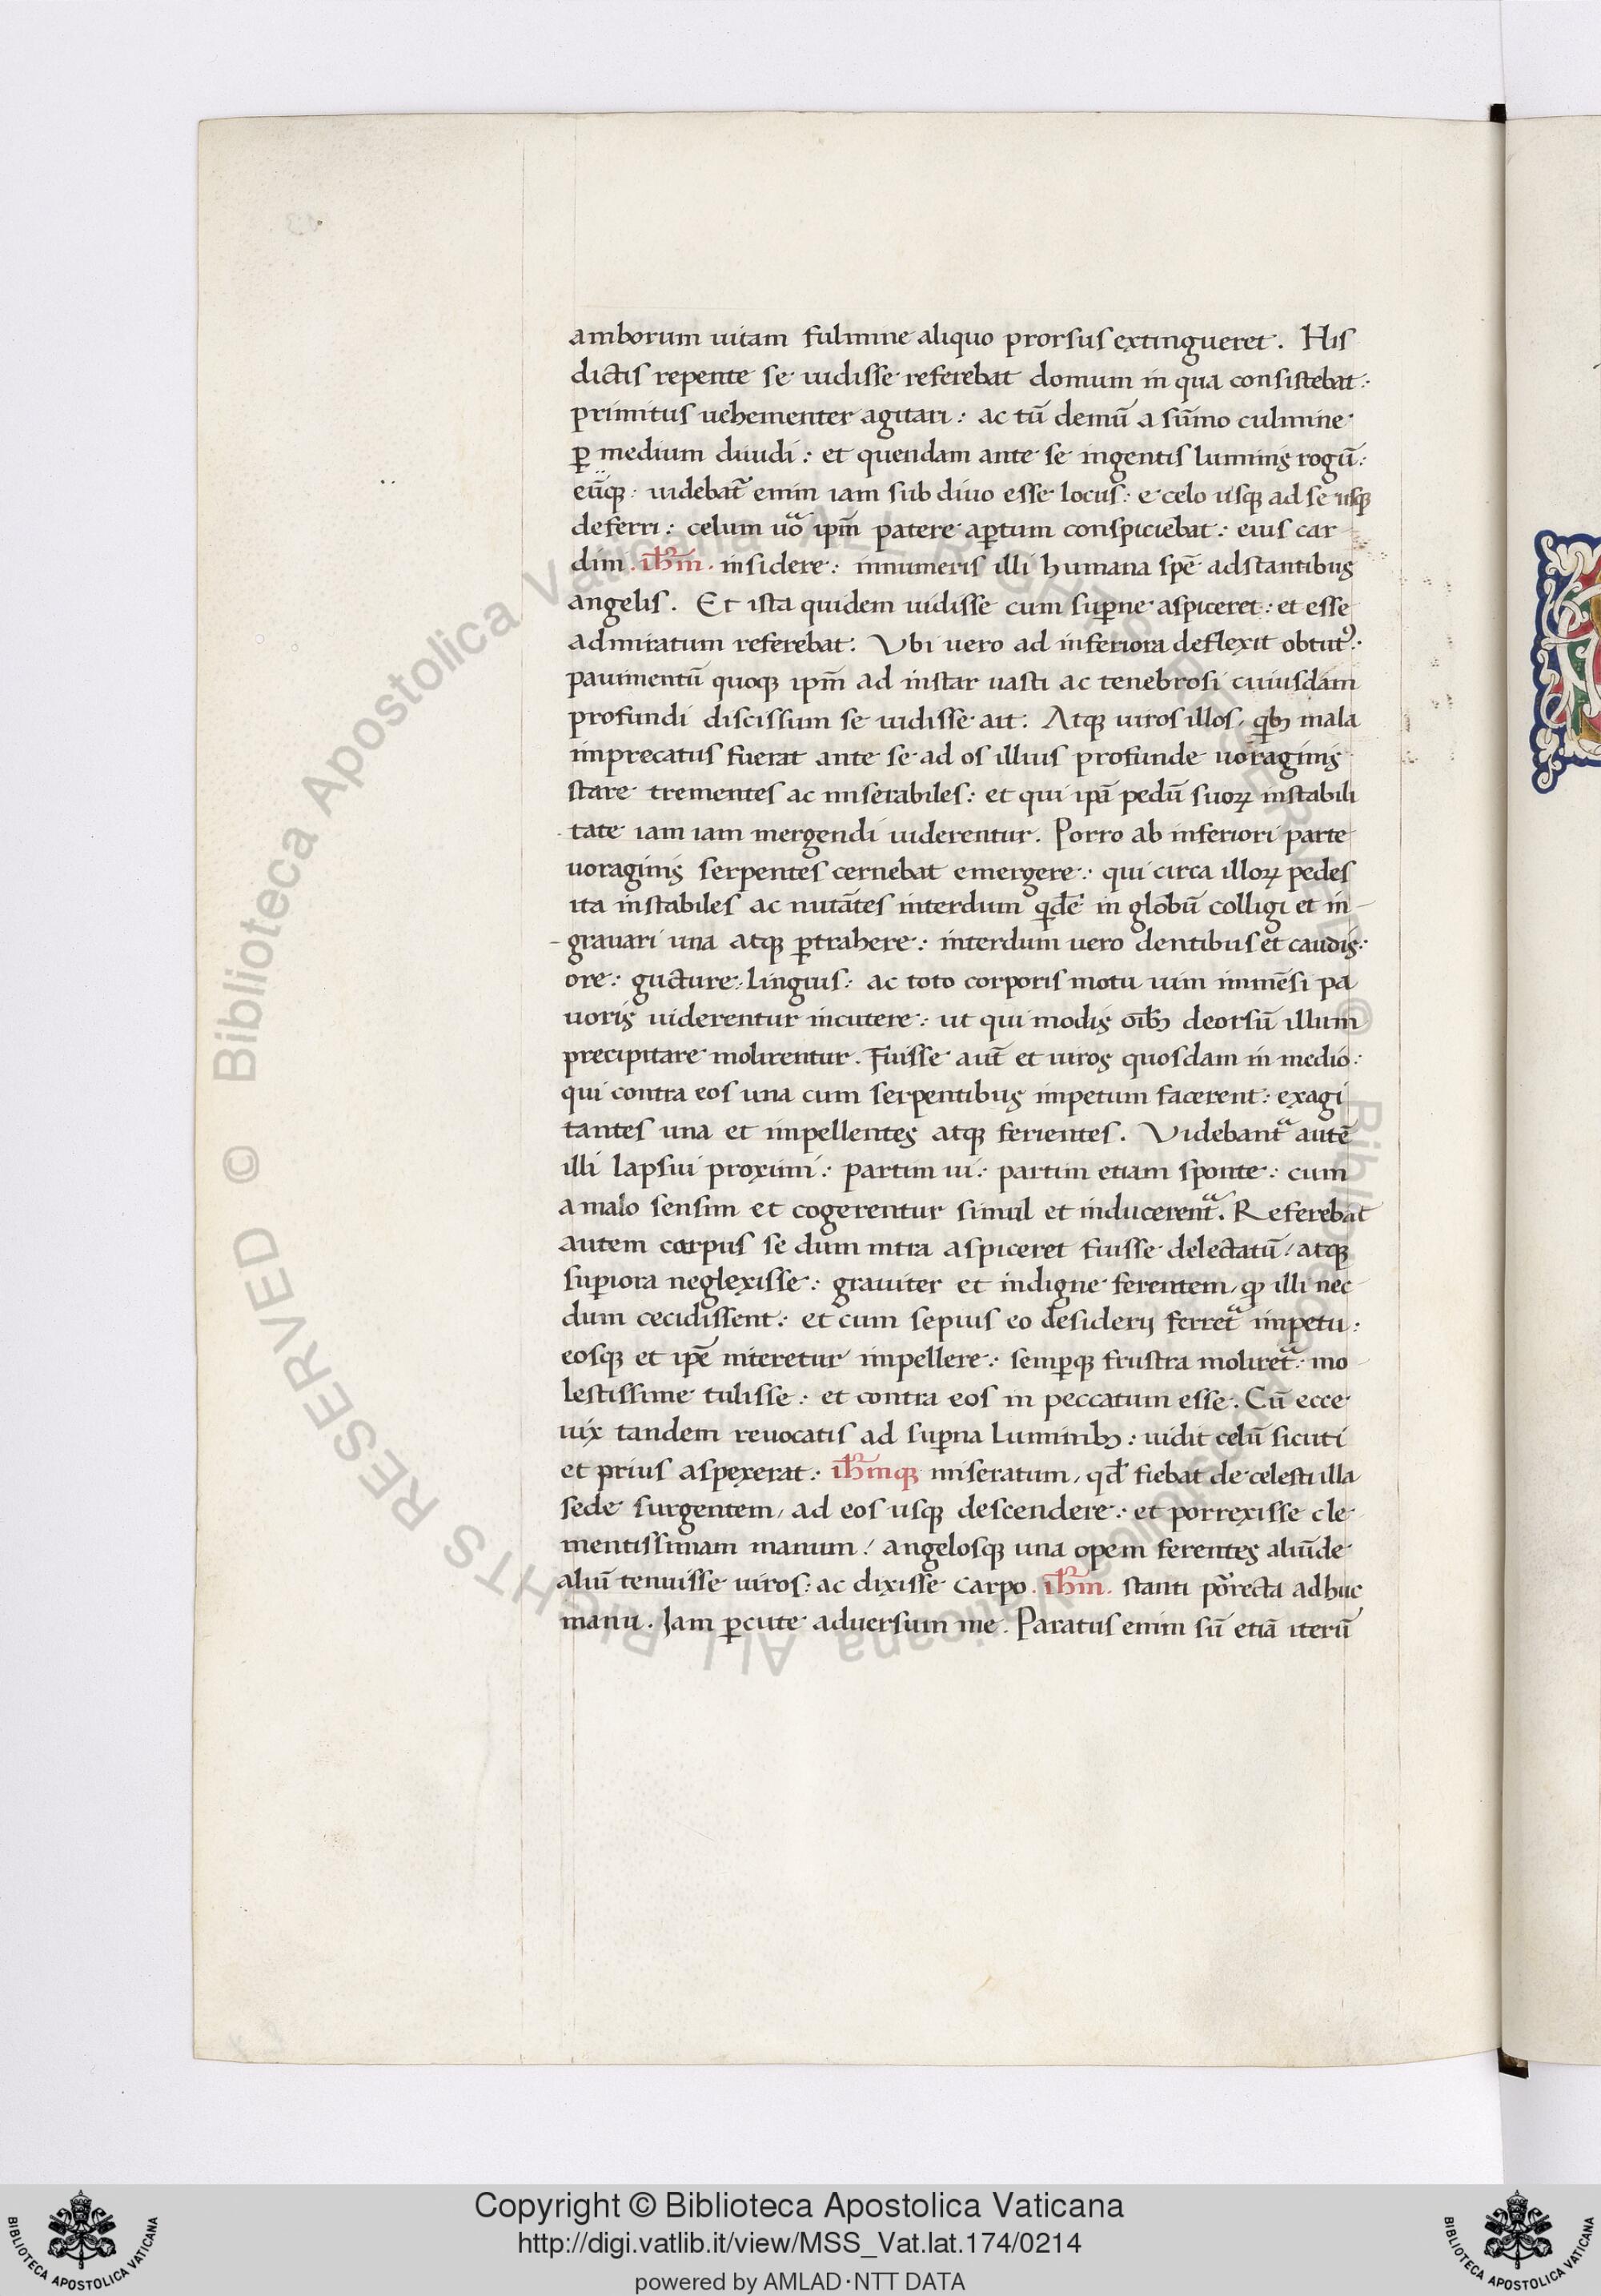 amborum uitam fulmine aliquo prorsus extingueret. His
dictis repente se uidisse referebat domum in qua consistebat:
primitus uehementer agitari: ac tū demū a sūmo culmine
ꝑ medium diuidi: et quendam ante se ingentis luminis rogū:
eūqꝫ: uidebat᷑ enim iam sub diuo esse locus: e celo usqꝫ ad se usqꝫ
deferri: celum uo̾ ip̄m patere aꝑtum conspiciebat: eius car
dini .ih̅m. insidere: innumeris illi humana spē adstantibus
angelis. Et ista quidem uidisse cum suꝑne aspiceret: et esse
admiratum referebat. Vbi uero ad inferiora deflexit obtutꝰ:
pauimentū quoqꝫ ip̄m ad instar uasti ac tenebrosi cuiusdam
profundi discissum se uidisse ait. Atqꝫ uiros illos, qbꝫ mala
imprecatus fuerat ante se ad os illius profunde uoraginis
stare trementes ac miserabiles: et qui ipā pedū suoꝝ instabili
tate iam iam mergendi uiderentur. Porro ab inferiori parte
uoraginis serpentes cernebat emergere: qui circa illoꝝ pedes
ita instabiles ac nutātes interdum qdē in globū colligi et in
grauari una atqꝫ ꝑtrahere: interdum uero dentibus et caudis:
ore: gucture: linguis: ac toto corporis motu uim immēsi pa
uoris uiderentur incutere: ut qui modis oībꝫ deorsū illum
precipitare molirentur. Fuisse aut̄ et uiros quosdam in medio:
qui contra eos una cum serpentibus impetum facerent: exagi
tantes una et impellentes atqꝫ ferientes. Videbant᷑ autē
illi lapsui proximi: partim ui: partim etiam sponte: cum
a malo sensim et cogerentur simul et inducerent᷑. Referebat
autem carpus se dum intra aspiceret fuisse delectatū / atqꝫ
suꝑiora neglexisse: grauiter et indigne ferentem, qꝫ illi nec
dum cecidissent: et cum sepius eo desiderij ferret᷑ impetu:
eosqꝫ et ipē niteretur impellere: semꝑqꝫ frustra moliret᷑: mo
lestissime tulisse: et contra eos in peccatum esse. Cū ecce
uix tandem reuocatis ad suꝑna luminibꝫ: uidit celū sicuti
et prius aspexerat: ih̅mqꝫ miseratum, qd̄ fiebat de celesti illa
sede surgentem, ad eos usqꝫ descendere: et porrexisse cle
mentissimam manum / angelosqꝫ una opem ferentes aliūde
aliū tenuisse uiros: ac dixisse Carpo .ih̅m. stanti porrecta adhuc
manu. Jam ꝑcute aduersum me. Paratus enim sū etiā iterū
© Biblioteca Apostolica Vaticana ALL RIGHTS RESERVED © Biblioteca Apostolica Vaticana ALL RIGHTS RESERVED
Copyright © Biblioteca Apostolica Vaticana
http://digi.vatlib.it/view/MSS_Vat.lat.174/0214
powered by AMLAD·NTT DATA
BIBLIOTECA APOSTOLICA VATICANA
BIBLIOTECA APOSTOLICA VATICANA